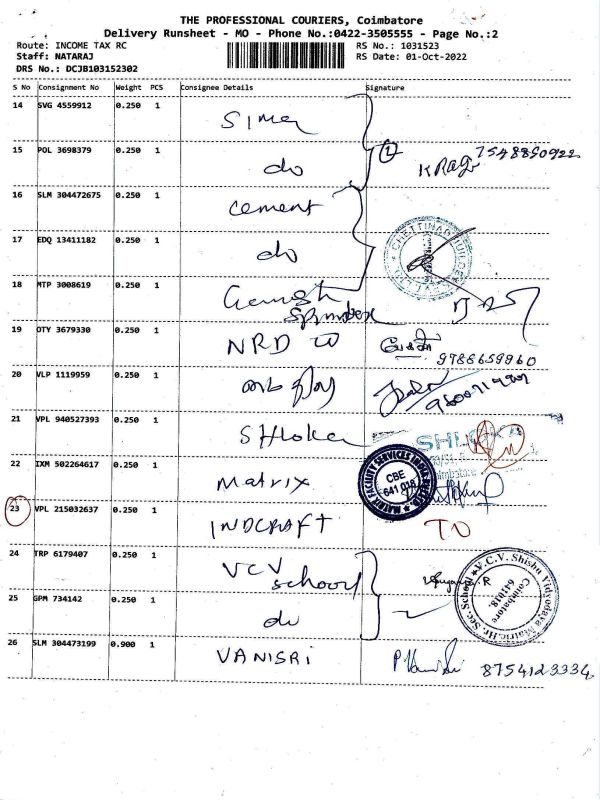 THE PROFESSIONAL COURIERS, Coimbatore
Delivery Runsheet - MO - Phone No.:0422-3505555 - Page No.:2
Route: INCOME TAX RC
RS No.: 1031523
Staff: NATARAJ
RS Date: 01-Oct-2022
DRS No.: DCJB103152302
S No Consignment No Weight PCS Consignee Details Signature
14 SVG 4559912 0.250 1
15 POL 3698379 0.250 1 do 1 7548850922
16 SLM 304472675 0.250 1 cement
17 EDQ 13411182 0.250 1 do
18 MTP 3008619 0.250 1
19 OTY 3679330 0.250 1 NRD 9788659960
20 VLP 1119959 0.250 1
21 VPL 940527393 0.250 1 Shloka SHLOKA
22 IXM 502264617 0.250 1 Matrix MATRIX FACILITY SERVICES INDIA CBE 641 018
23 VPL 215032637 0.250 1 INDCRAFT
24 TRP 6179407 0.250 1 VCV school V.C.V. Shishu Vidyodaya Matric.Hr. Sec. School Coimbatore 641018.
25 GPM 734142 0.250 1 do
26 SLM 304473199 0.900 1 VANISRI 8754123334